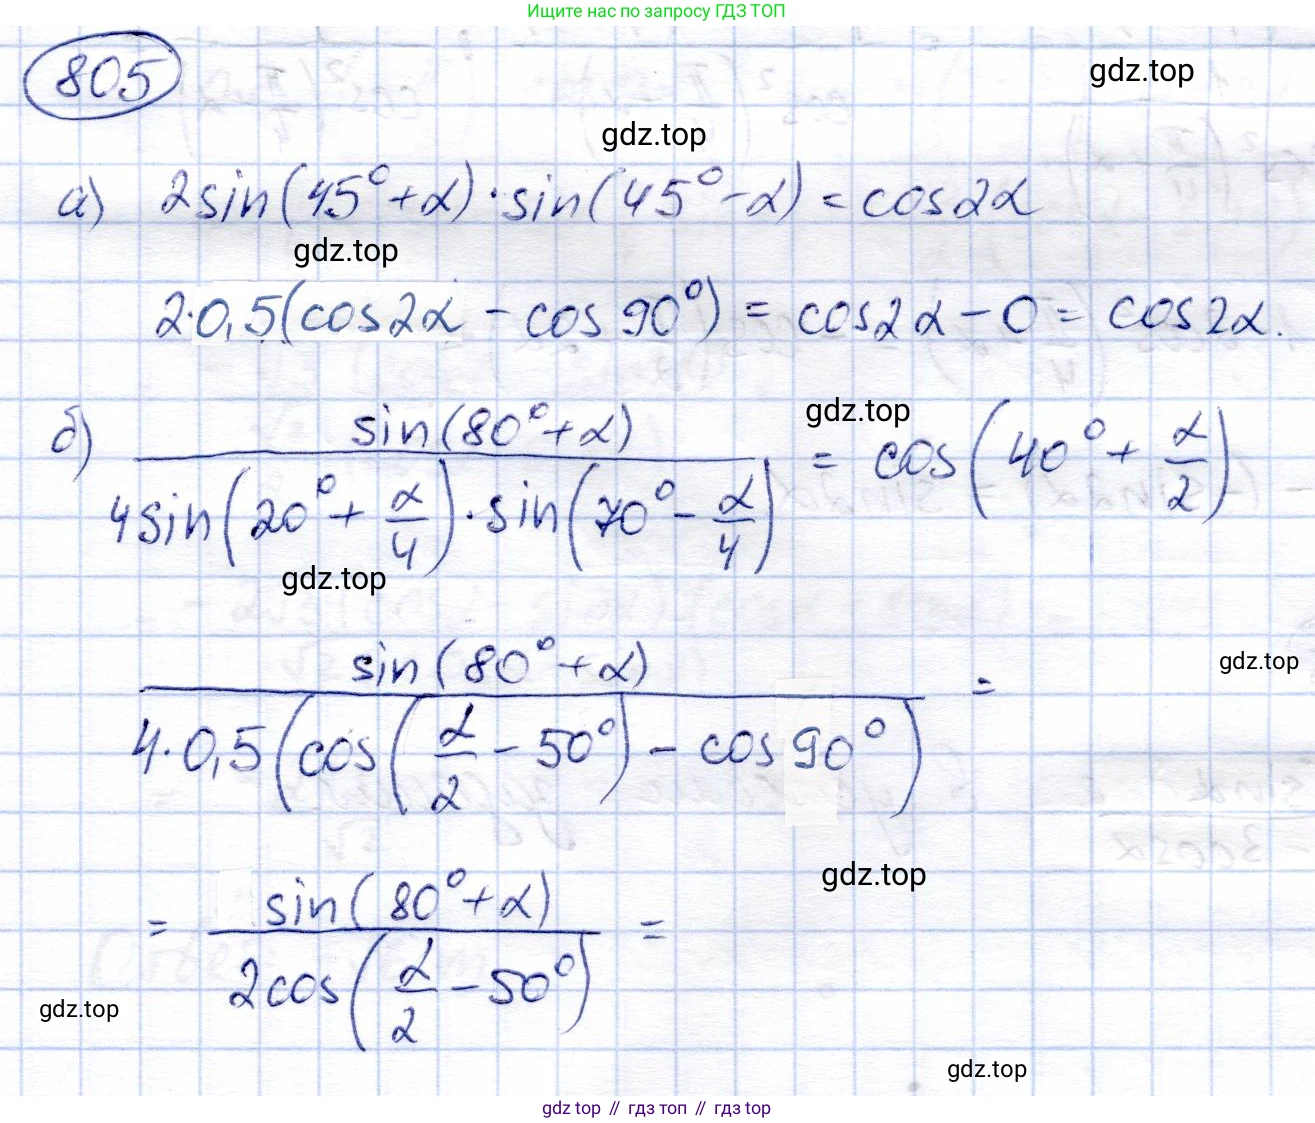 Ищите нас по запросу ГДЗ ТОП
805
gdz.top
gdz.top
а) 2sin(45°+α)·sin(45°-α) = cos2α
gdz.top
2·0,5(cos2α - cos90°) = cos2α - 0 = cos2α.
gdz.top
б) sin(80°+α) / 4sin(20°+α/4)·sin(70°-α/4) = cos(40°+α/2)
gdz.top
gdz.top
sin(80°+α) / 4·0,5(cos(α/2-50°) - cos90°) =
gdz.top
= sin(80°+α) / 2cos(α/2-50°) =
gdz.top
gdz.top
gdz.top // гдз топ // гдз top